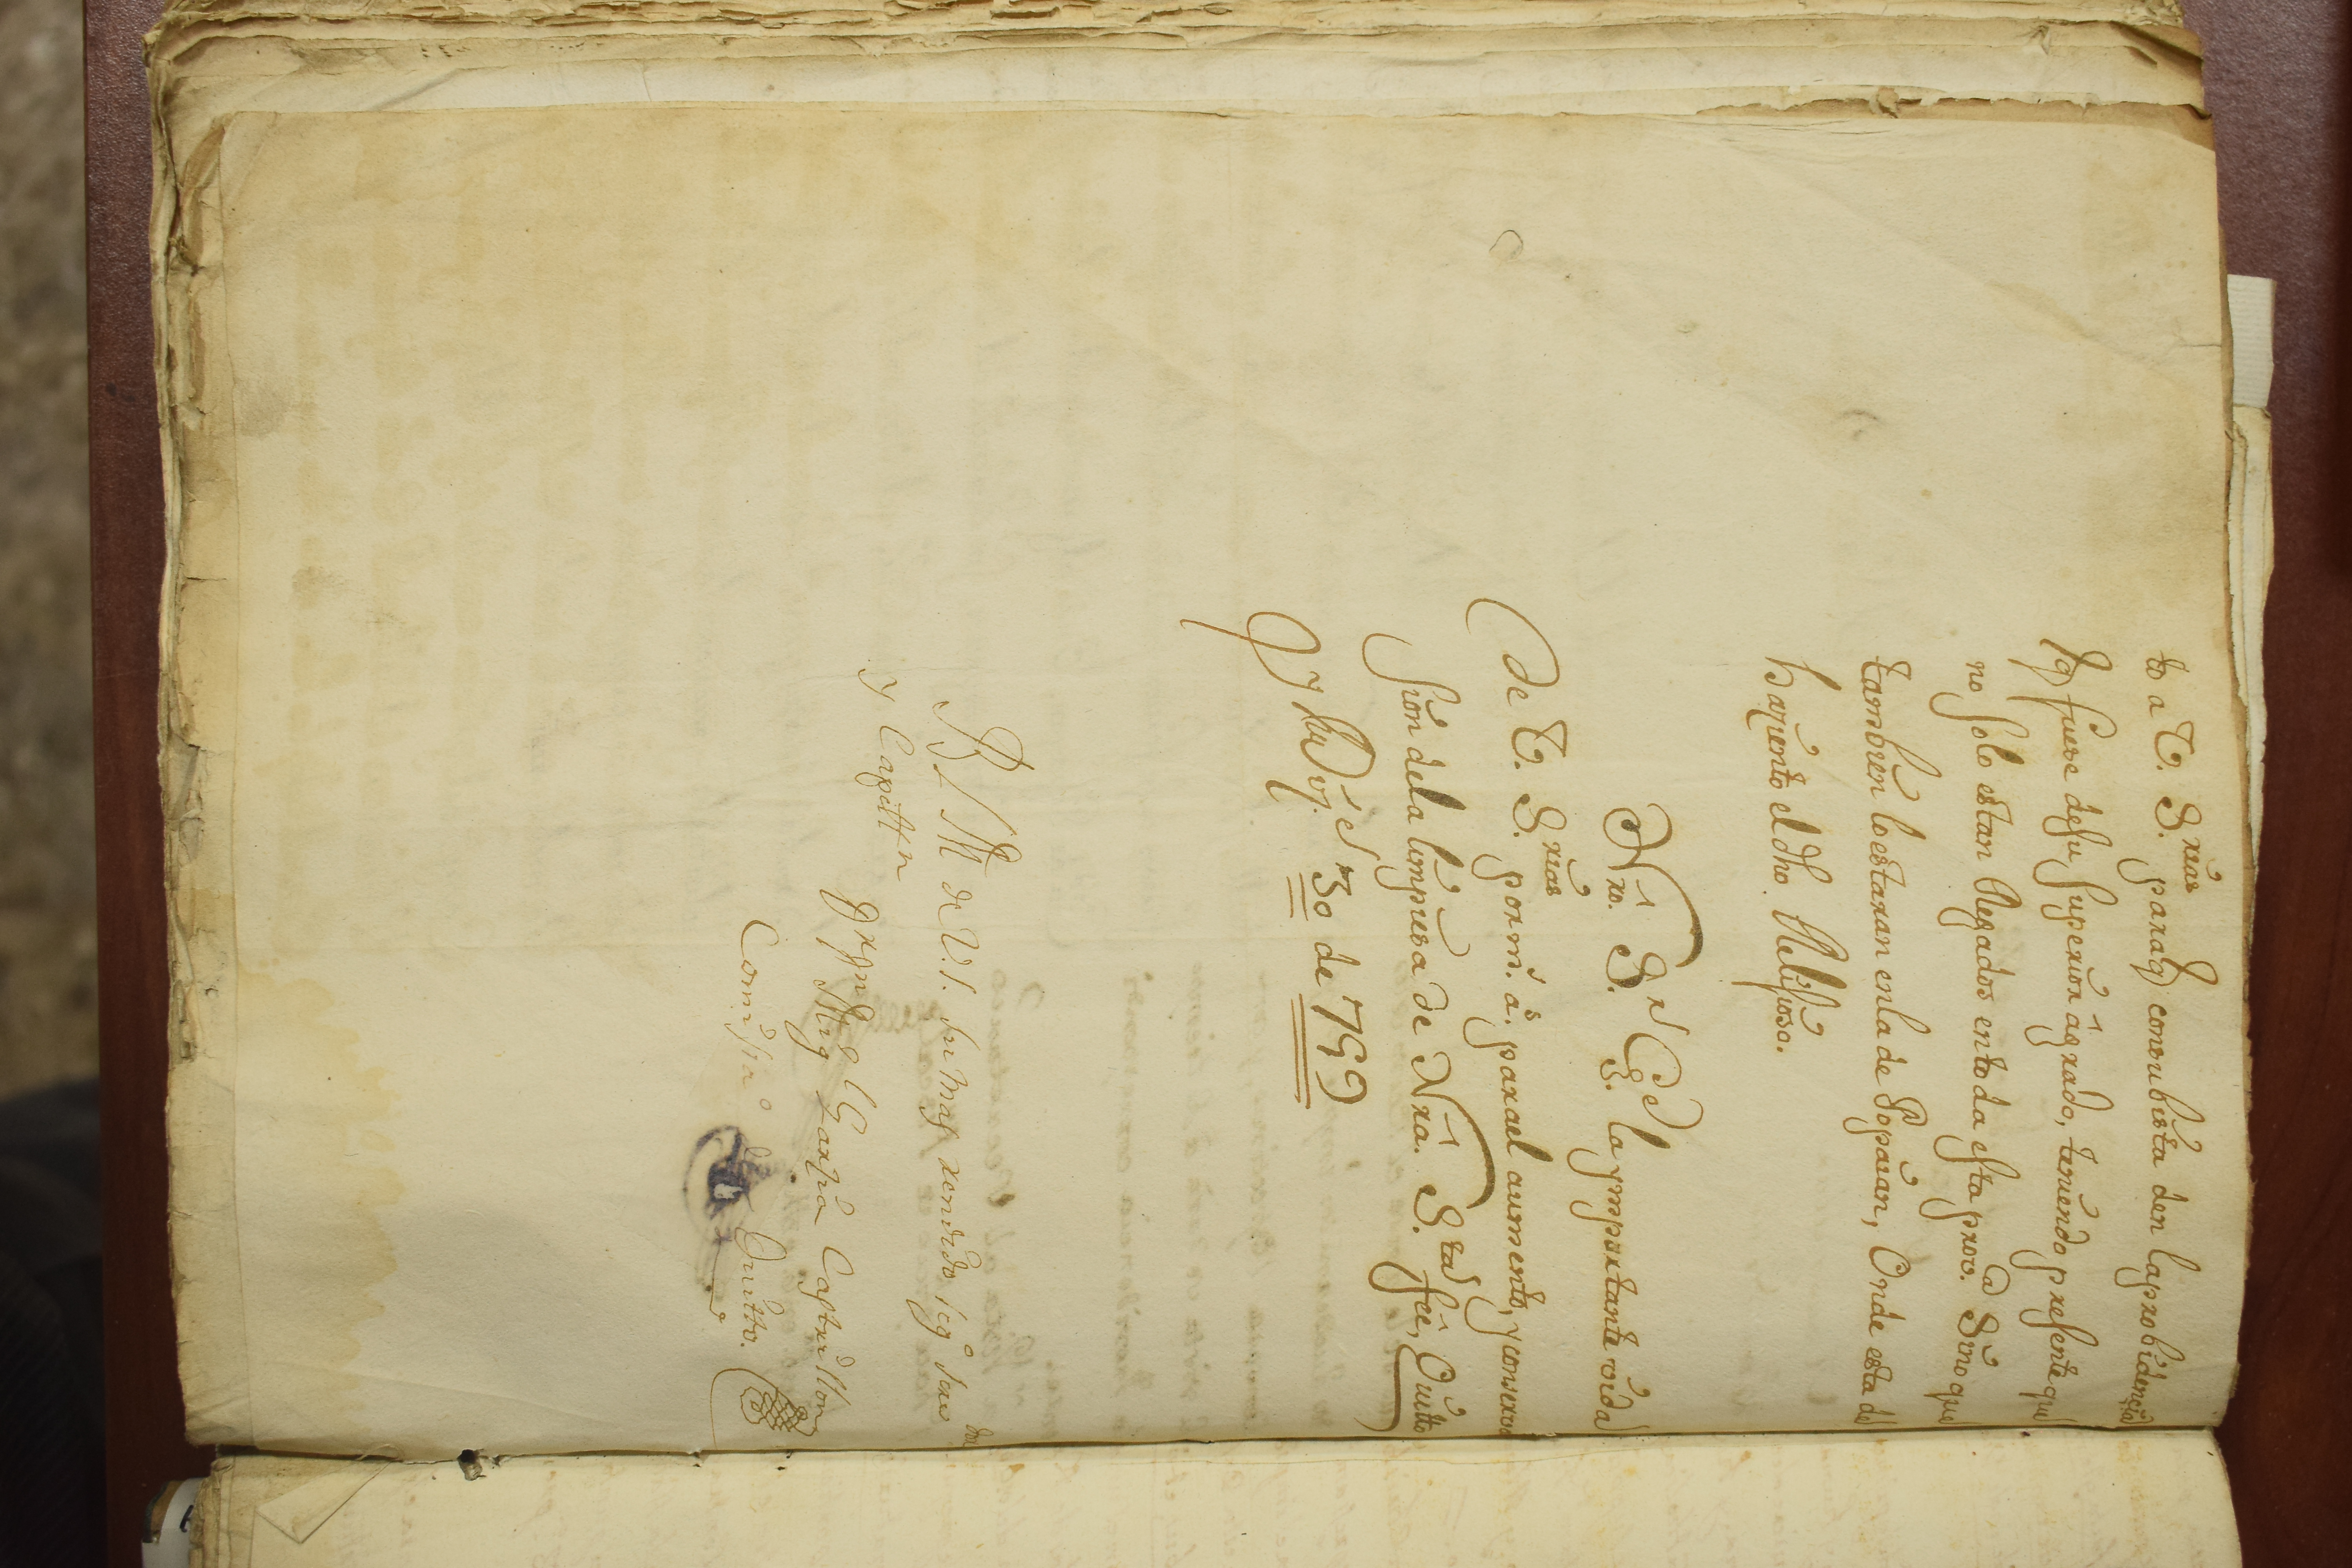 to a V. S.rias paraq con su bista den la probidencia
q fuere de su superior agrado, teniendo presente que
no solo estan llegados en toda esta prov.a Sino que
tambien lo estaran en la de Popaian, Onde esta de
barqento el dho. Relijioso.
Nro. S.r G.e la ymportante vida
de V. S.rias por m.s a.s para el aumento, y conserva
sion de la limpiesa de Nra. S.ta fee, Quitto
y 30 de 1759
B L M de V.S. su mas rendido seg.o ser.dor
y Capellan
Garzia Castrillon
Comis.rio Quitto.